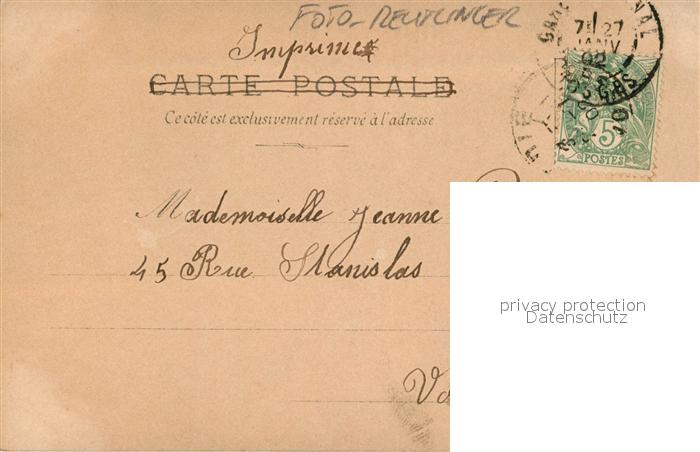 FOTO-REUTLINGER
Imprimé
CARTE POSTALE
Ce côté est exclusivement réservé à l'adresse
7E 27
JANV
02
5
POSTES
Mademoiselle Jeanne
45 Rue Stanislas
privacy protection
Datenschutz